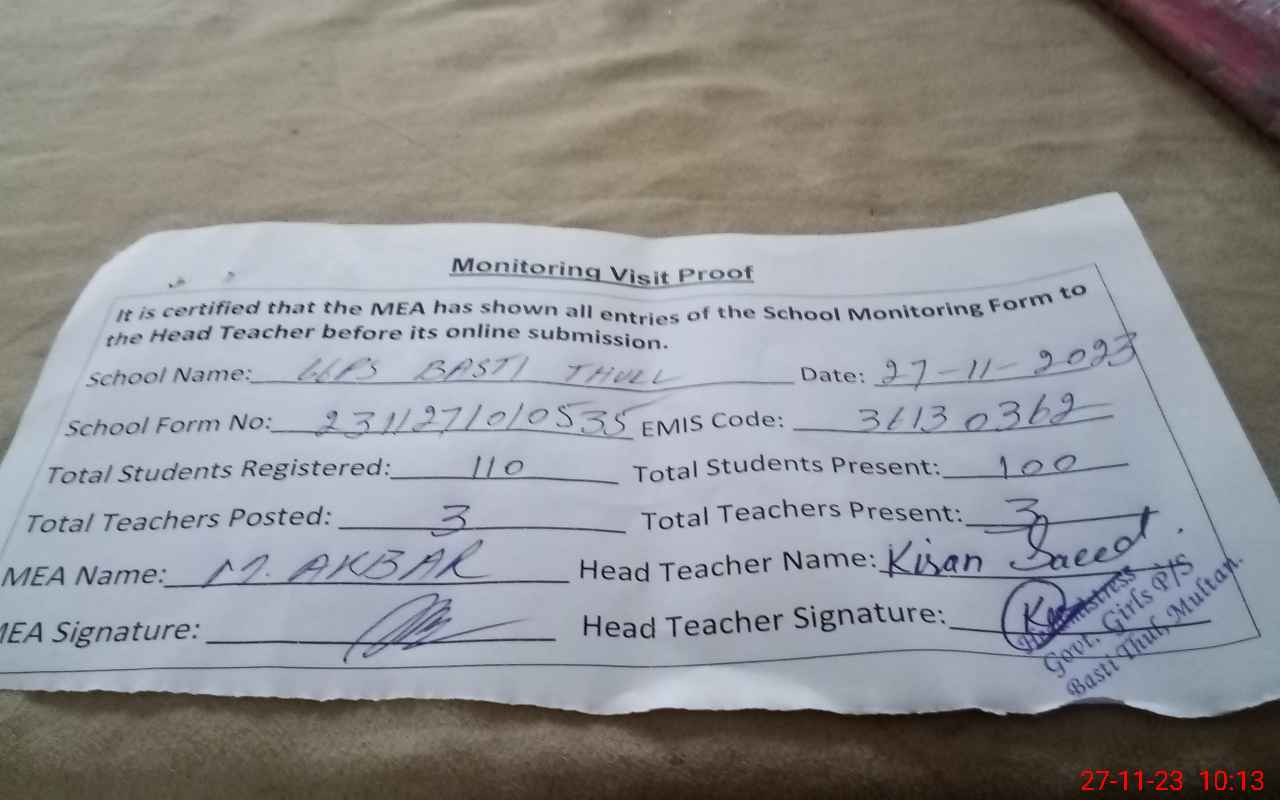 Monitoring Visit Proof
It is certified that the MEA has shown all entries of the School Monitoring Form to
the Head Teacher before its online submission.
School Name: GGPS BASTI THULL Date: 27-11-2023
School Form No: 231127010535 EMIS Code: 36130362
Total Students Registered: 110 Total Students Present: 100
Total Teachers Posted: 3 Total Teachers Present: 3
MEA Name: M. AKBAR Head Teacher Name: Kisan Saeed.
MEA Signature: Head Teacher Signature:
Headmistress
Govt. Girls P/S
Basti Thul, Multan.
27-11-23 10:13